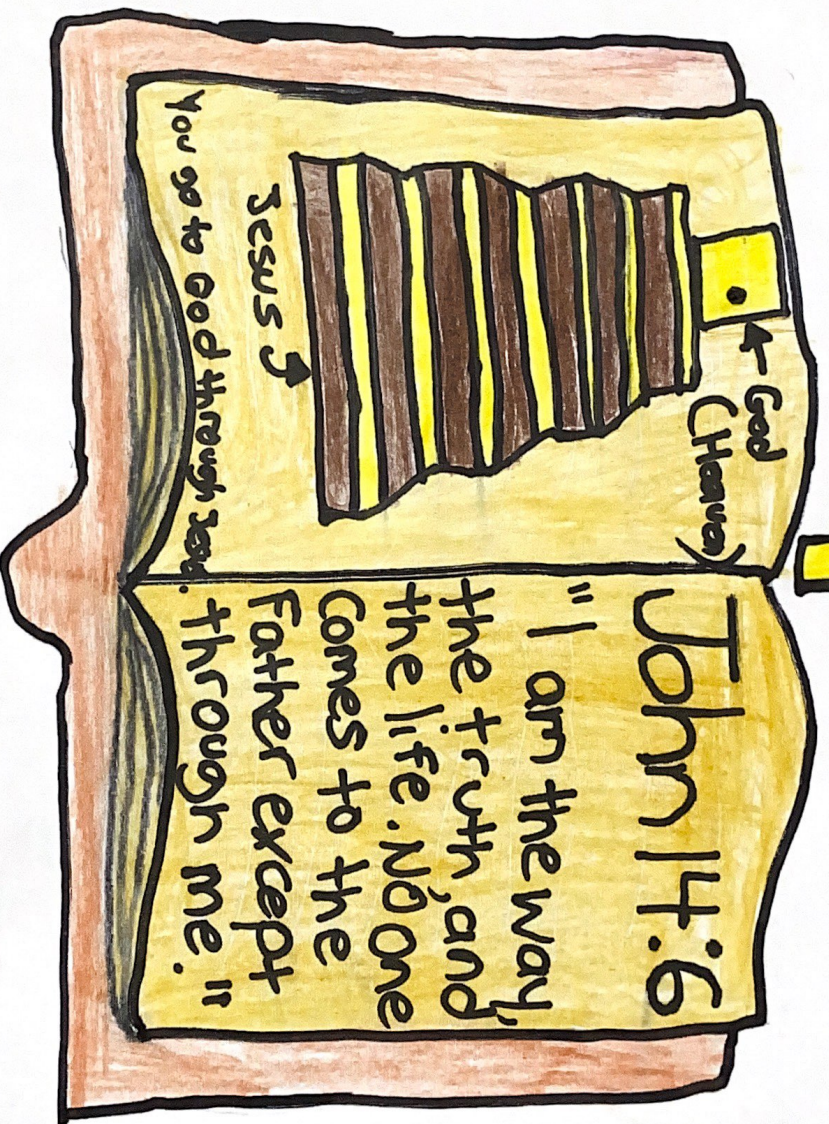 God
(Heaven)
Jesus
You go to God through Jesus.
John 14:6
"I am the way,
the truth, and
the life. No one
Comes to the
Father except
through me."